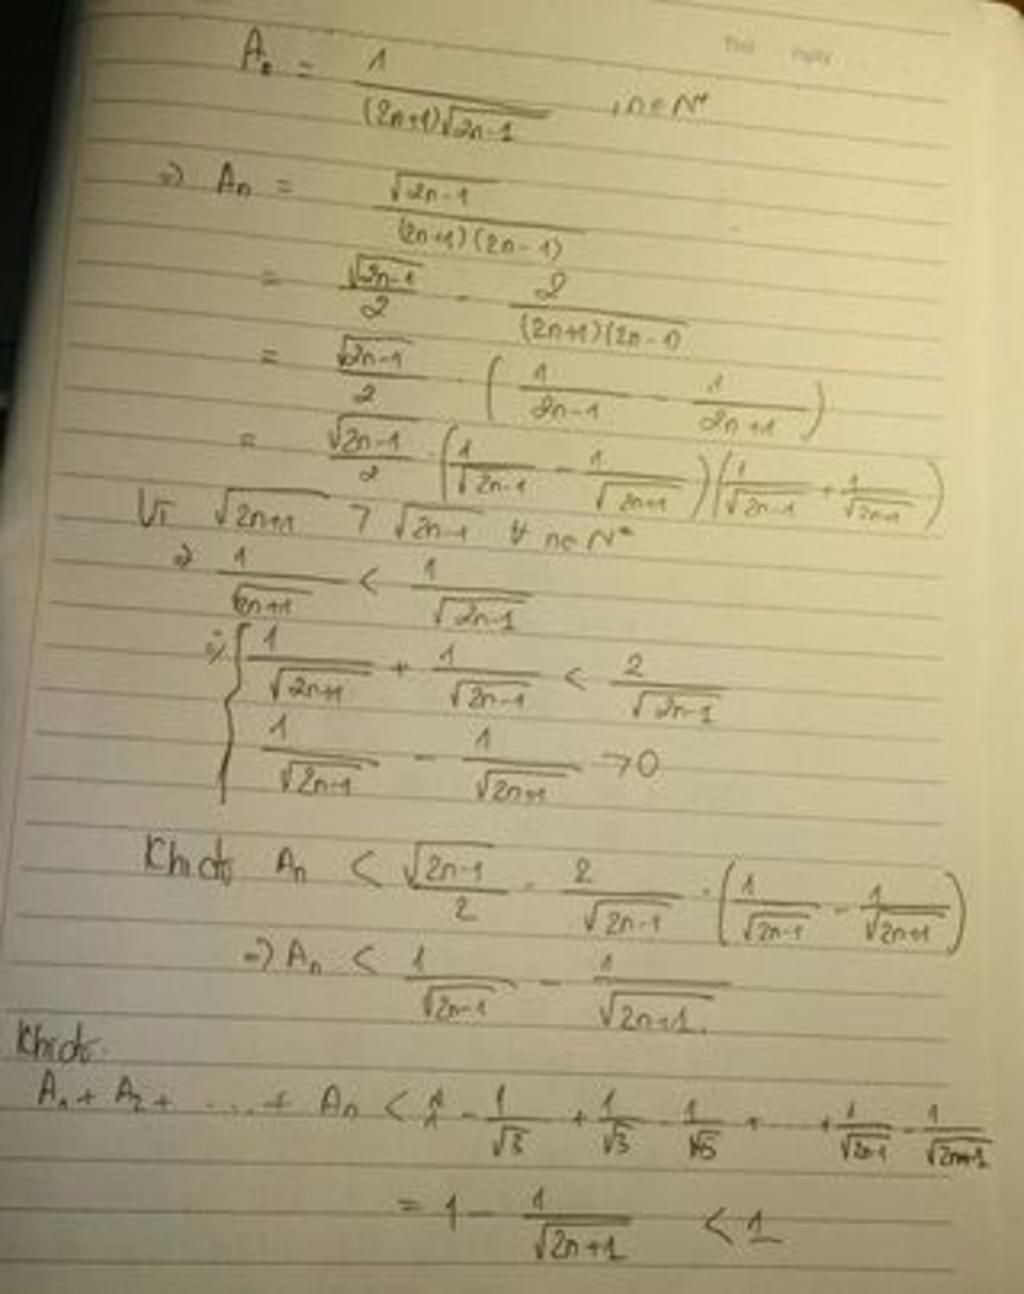 Thứ ngày
Aₙ = 1/((2n+1)√(2n-1)) , n ∈ N*
=> Aₙ = √(2n-1)/((2n+1)(2n-1))
= √(2n-1)/2 · 2/((2n+1)(2n-1))
= √(2n-1)/2 · (1/(2n-1) - 1/(2n+1))
= √(2n-1)/2 · (1/√(2n-1) - 1/√(2n+1))(1/√(2n-1) + 1/√(2n+1))
Vì √(2n+1) > √(2n-1) ∀ n ∈ N*
=> 1/√(2n+1) < 1/√(2n-1)
=> { 1/√(2n+1) + 1/√(2n-1) < 2/√(2n-1)
1/√(2n-1) - 1/√(2n+1) > 0
Khi đó Aₙ < √(2n-1)/2 · 2/√(2n-1) · (1/√(2n-1) - 1/√(2n+1))
=> Aₙ < 1/√(2n-1) - 1/√(2n+1)
Khi đó
A₁ + A₂ + ... + Aₙ < 1/1 - 1/√3 + 1/√3 - 1/√5 + ... + 1/√(2n-1) - 1/√(2n+1)
= 1 - 1/√(2n+1) < 1